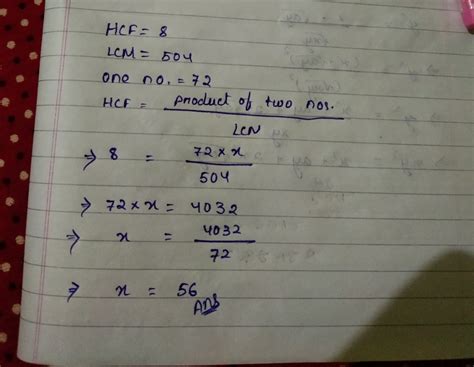 HCF = 8
LCM = 504
one no. = 72
HCF = product of two nos.
LCM
⇒ 8 = 72 × x
504
⇒ 72 × x = 4032
⇒ x = 4032
72
⇒ x = 56
Ans